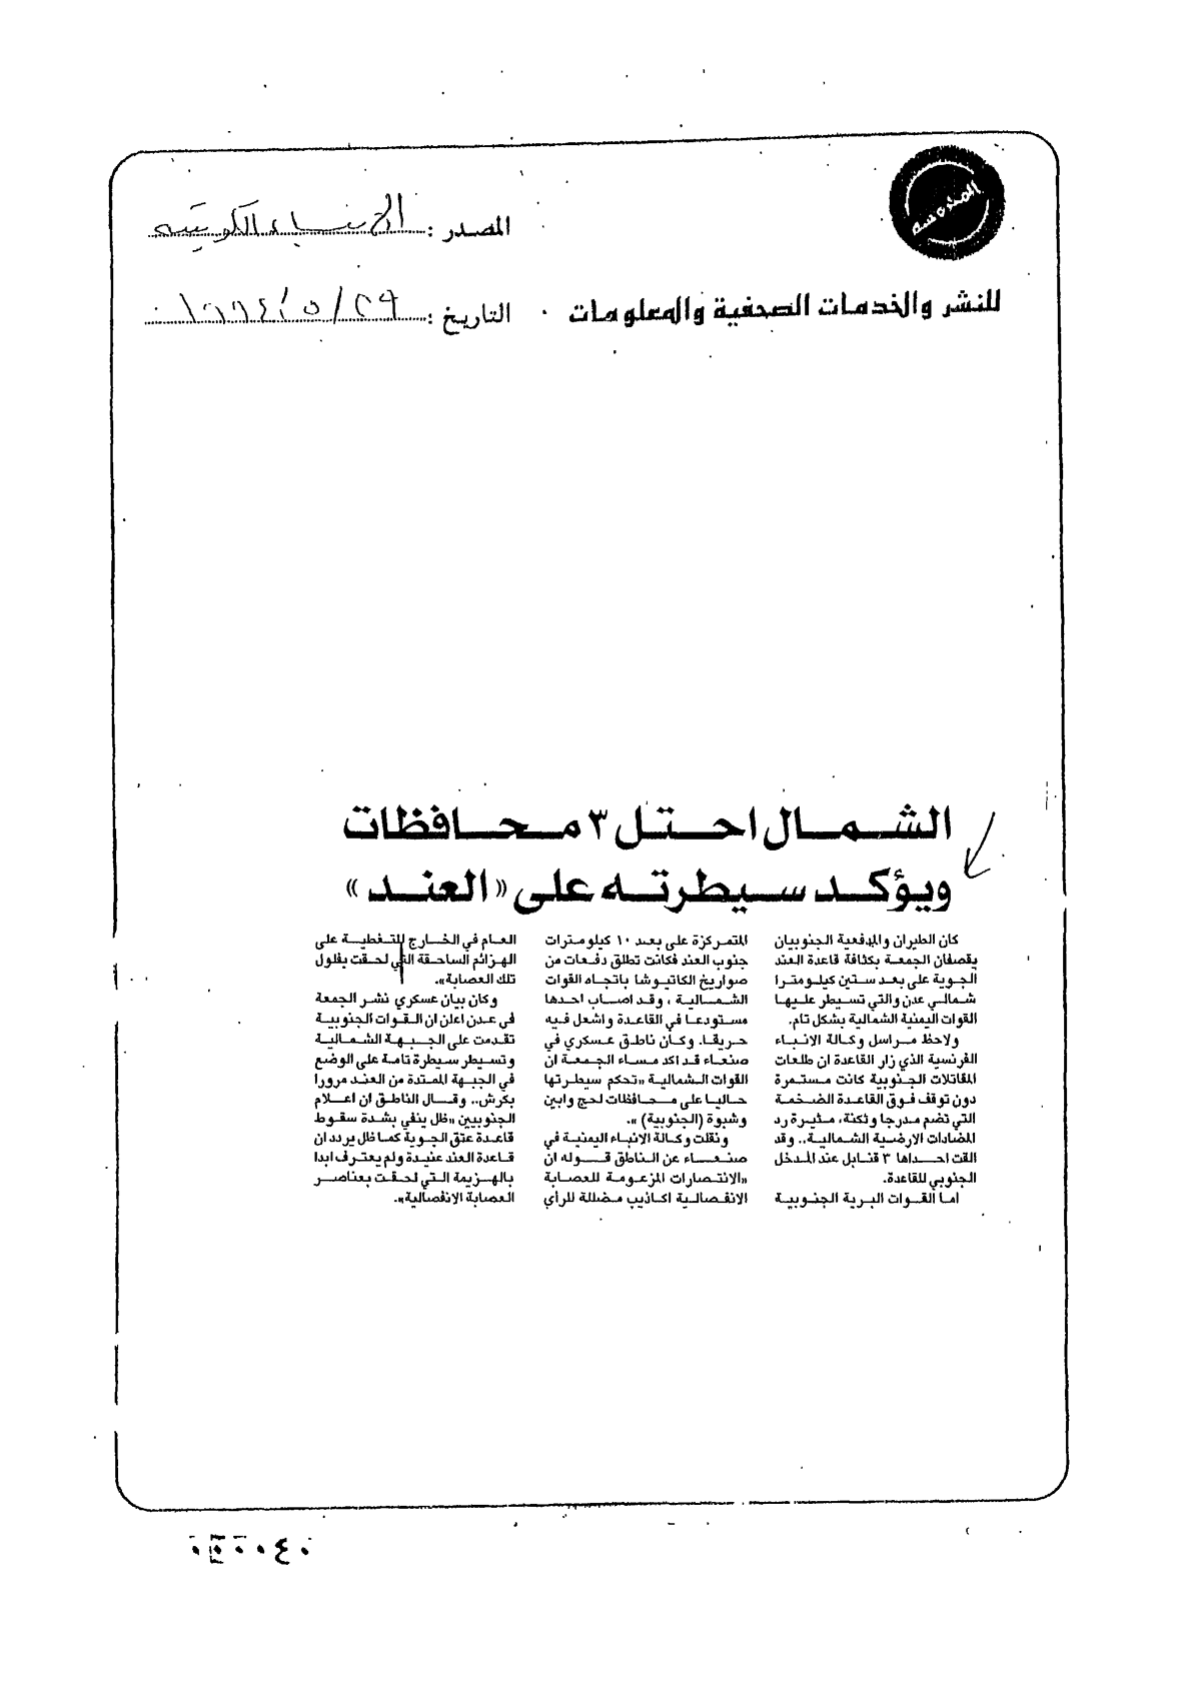 المصدر : الانباء الكويتية
للنشر والخدمات الصحفية والمعلومات
التاريخ : ٢٩ / ٥ / ١٩٩٤
الشمال احتل ٣ محافظات
ويؤكد سيطرته على «العند»
كان الطيران والمدفعية الجنوبيان
يقصفان الجمعة بكثافة قاعدة العند
الجوية على بعد ستين كيلومترا
شمالي عدن والتي تسيطر عليها
القوات اليمنية الشمالية بشكل تام.
ولاحظ مراسل وكالة الانباء
الفرنسية الذي زار القاعدة ان طلعات
المقاتلات الجنوبية كانت مستمرة
دون توقف فوق القاعدة الضخمة
التي تضم مدرجا وثكنة، مثيرة رد
المضادات الارضية الشمالية.. وقد
القت احداها ٣ قنابل عند المدخل
الجنوبي للقاعدة.
اما القوات البرية الجنوبية
المتمركزة على بعد ١٠ كيلومترات
جنوب العند فكانت تطلق دفعات من
صواريخ الكاتيوشا باتجاه القوات
الشمالية ، وقد اصاب احدها
مستودعا في القاعدة واشعل فيه
حريقا. وكان ناطق عسكري في
صنعاء قد اكد مساء الجمعة ان
القوات الشمالية «تحكم سيطرتها
حاليا على محافظات لحج وابين
وشبوة (الجنوبية) ».
ونقلت وكالة الانباء اليمنية في
صنعاء عن الناطق قوله ان
«الانتصارات المزعومة للعصابة
الانفصالية اكاذيب مضللة للرأي
العام في الخارج للتغطية على
الهزائم الساحقة التي لحقت بفلول
تلك العصابة».
وكان بيان عسكري نشر الجمعة
في عدن اعلن ان القوات الجنوبية
تقدمت على الجبهة الشمالية
وتسيطر سيطرة تامة على الوضع
في الجبهة الممتدة من العند مرورا
بكرش.. وقال الناطق ان اعلام
الجنوبيين «ظل ينفي بشدة سقوط
قاعدة عتق الجوية كما ظل يردد ان
قاعدة العند عنيدة ولم يعترف ابدا
بالهزيمة التي لحقت بعناصر
العصابة الانفصالية».